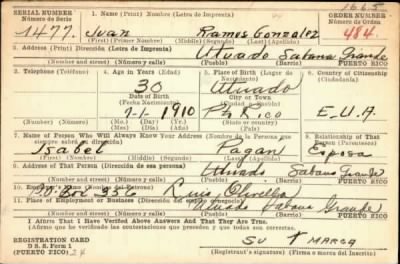 1665
SERIAL NUMBER 1. Name (Print) Nombre (Letra de Imprenta) ORDER NUMBER
Número de Serie Número de Orden
1477. Juan Ramos Gonzalez 484.
(First) (Primer Nombre) (Middle) (Segundo) (Last) (Apellido)
2. Address (Print) Dirección (Letra de Imprenta)
Utuado Sabana Grande
(Number and street) (Número y calle) (Pueblo) (Barrio) PUERTO RICO
3. Telephone (Teléfono) 4. Age in Years (Edad) 5. Place of Birth (Lugar de Nacimiento) 6. Country of Citizenship (Ciudadanía)
30 Utuado
Date of Birth City or Town
(Fecha Nacimiento) (Municipio)
1910 Pto Rico E.U.A.
State or country
7. Name of Person Who Will Always Know Your Address (Nombre de la Persona que siempre sabrá su dirección) 8. Relationship of That Person (Parentesco)
Isabel Pagan Esposa
(First) (Middle) (Segundo) (Last) (Apellido)
9. Address of That Person (Dirección de esa persona)
Utuado Sabana Grande
(Number and street) (Número y calle) (Pueblo) (Barrio) PUERTO RICO
10. Employer's Name (Nombre del Patrono)
Box 336 Luis
11. Place of Employment or Business (Dirección del sitio de empleo)
Utuado Sabana Grande
(Number and street) (Número y calle) (Pueblo) (Barrio) PUERTO RICO
I Affirm That I Have Verified Above Answers And That They Are True.
(Afirmo que he verificado las contestaciones que anteceden y que son ciertas)
REGISTRATION CARD
D. S. S. Form 1
(PUERTO RICO)
SU † MARCA
(Registrant's signature) (Firma del Registrado)